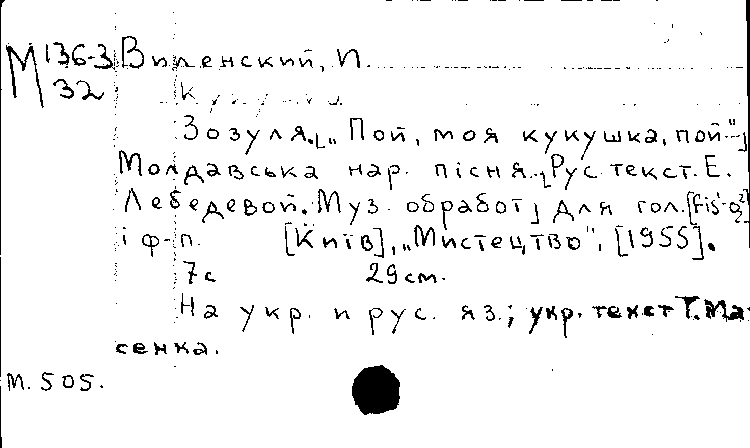 М 136-3 Виленский, И.
32
Зозуля. [„Пой, моя кукушка, пой“]
Молдавська нар. пісня. [Рус. текст. Е.
Лебедевой. Муз. обработ] Для гол.
і ф-п. [Київ], „Мистецтво“, [1955].
7с 29 см.
На укр. и рус. яз.; укр. текст Т. Ма
сенка.
М. 505.